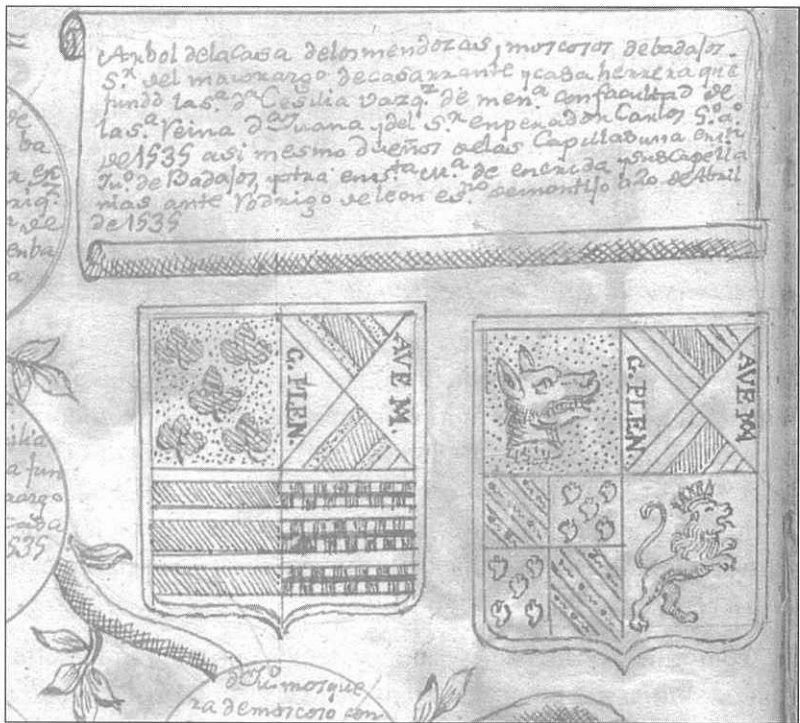 Arbol de la Casa de los mendozas, y moscosos de badajos.
S.r del maiorazgo de casarrante y casa herrera que
fundo la s.a d.a Cesilia vazq.z de men.a con facultad de
la s.a Reina d.a Juana y del s.r enperador Carlos 5.o a.o
de 1535 asi mismo dueños de las Capillas una en
Ju.o de Badajos, y otra en s.ta de merida y sus Capella
nias ante Rodrigo de leon es.no de montijo a 20 de Abril
de 1535
de
ba
en
riq.z
de
enba
a
AVE M.
G. PLEN.
AVE MA
G. PLEN
ilia
a fun
razgo
casa
535
d Ju.o mosque
ra de moscoso con